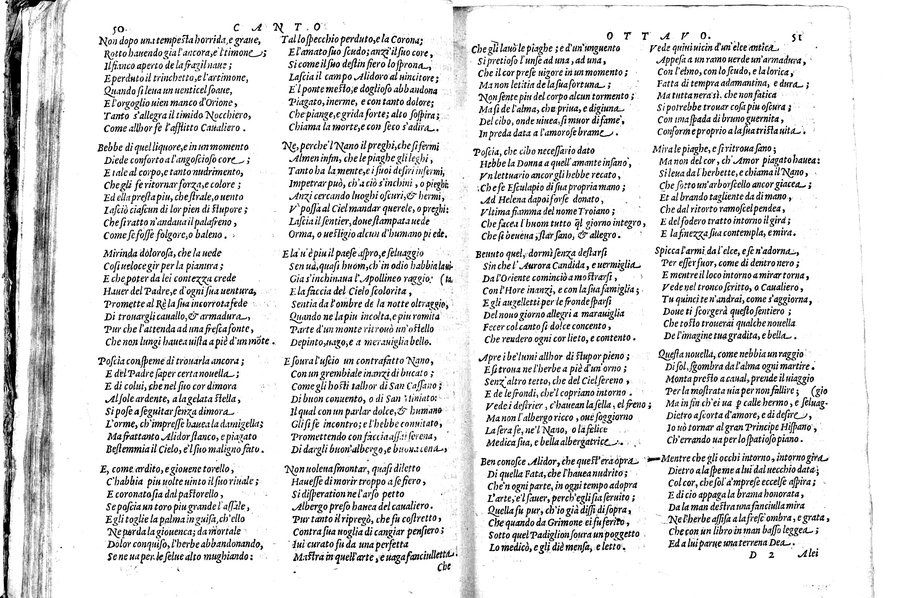 50 CANTO
Non dopo una tempesta horrida, e graue,
Rotto hauendo gia l'ancora, e'l timone;
Il fianco aperto de la fragil naue;
E perduto il trinchetto, e l'artimone,
Quando si leua un uenticel soaue,
E l'orgoglio uien manco d'Orione,
Tanto s'allegra il timido Nocchiero,
Come allhor fe l'afflitto Caualiero.
Bebbe di quel liquore, e in un momento
Diede conforto a l'angoscioso core;
E tale al corpo, e tanto nudrimento,
Che gli fe ritornar forza, e colore;
Ed ella presta piu, che strale, o uento
Lasciò ciascun di lor pien di stupore;
Che si ratto n'andaua il palafreno,
Come se fosse folgore, o baleno.
Mirinda dolorosa, che la uede
Cosi ueloce gir per la pianura;
E che poter da lei contezza crede
Hauer del Padre, e d'ogni sua uentura,
Promette al Rè la sua incorrota fede
Di trouargli cauallo, & armadura,
Pur che l'attenda ad una fresca fonte,
Che non lungi hauea uista a piè d'un monte.
Poscia con speme di trouarla ancora;
E del Padre saper certa nouella;
E di colui, che nel suo cor dimora
Al sole ardente, a la gelata stella,
Si pose a seguitar senza dimora
L'orme, ch'impresse hauea la damigella;
Ma fra tanto Alidor stanco, e piagato
Bestemmia il Cielo, e'l suo maligno fato.
E, come ardito, e giouene torello,
C'habbia piu uolte uinto il suo riuale;
E coronato sia dal pastorello,
Se poscia un toro piu grande l'assale,
E gli toglie la palma in guisa, ch'ello
Ne perda la giouenca; da mortale
Dolor conquiso, l'herbe abbandonando,
Se ne ua per le selue alto mughiando:
Tal lo specchio perduto, e la Corona;
E l'amato suo scudo; anzi il suo core,
Si come il suo destin fiero lo sprona,
Lascia il campo Alidoro al uincitore;
E'l ponte mesto, e doglioso abbandona
Piagato, inerme, e con tanto dolore;
Che piange, e grida forte; alto sospira;
Chiama la morte, e con seco s'adira.
Ne, perche'l Nano il preghi, che si fermi
Almen infin, che le piaghe gli leghi,
Tanto ha la mente, e i suoi desiri infermi,
Impetrar può, ch'a ciò s'inchini, o pieghi:
Anzi cercando luoghi oscuri, & hermi,
V' possa al Ciel mandar querele, o preghi:
Lascia il sentier, doue stampata uede
Orma, o uestigio alcun d'humano piede.
E la u' è piu il paese aspro, e seluaggio
Sen uà, quasi huom, ch'in odio habbia la uita
Gia s'inchinaua l'Apollineo raggio;
E la faccia del Cielo scolorita,
Sentia da l'ombre de la notte oltraggio,
Quando ne la piu incolta, e piu romita
Parte d'un monte ritrouò un'ostello
Depinto, uago, e a merauiglia bello.
E soura l'uscio un contrafatto Nano,
Con un grembiale inanzi di bucato;
Come gli hosti talhor di San Cassano;
Di buon conuento, o di San Miniato:
Il qual con un parlar dolce, & humano
Gli si fe incontro; e l'hebbe conuitato,
Promettendo con faccia assai serena,
Di dargli buon'albergo, e buona cena,
Non uolea smontar, quasi diletto
Hauesse di morir troppo a se fiero,
Si disperation ne l'arso petto
Albergo preso hauea del caualiero.
Pur tanto il ripregò, che fu costretto,
Contra sua uoglia di cangiar pensiero;
Iui curato fu da una perfetta
Mastra in quell'arte, e uaga fanciulletta
Che
OTTAVO. 51
Che gli lauò le piaghe; e d'un'unguento
Si pretioso l'unse ad una, ad una,
Che il cor prese uigore in un momento;
Ma non letitia de la sua fortuna;
Non sente piu del corpo alcun tormento;
Ma si de l'alma, che priua, e digiuna
Del cibo, onde uiuea, si muor di fame,
In preda data a l'amorose brame.
Poscia, che cibo necessario dato
Hebbe la Donna a quell'amante insano,
Vn lettuario ancor gli hebbe recato,
Che se Esculapio di sua propria mano;
Ad Helena dapoi forse donato,
Vltima fiamma del nome Troiano;
Che facea l'huom tutto 'ql giorno integro,
Che si beueua, star sano, & allegro.
Beuuto quel, dormì senza destarsi
Sin che l'Aurora Candida, e uermiglia
Da l'Oriente cominciò a mostrarsi,
Con l'Hore inanzi, e con la sua famiglia;
E gli augelletti per le fronde sparsi
Del nouo giorno allegri a marauiglia
Fecer col canto si dolce concento,
Che reudero ogni cor lieto, e contento.
Apre i be lumi allhor di stupor pieno;
E si troua ne l'herbe a piè d'un'orno;
Senz'altro tetto, che del Ciel sereno,
E de le frondi, che'l copriano intorno.
Vede i desirier, c'hauean la sella, el freno;
Ma non l'albergo ricco, oue soggiorno
La sera fe, ne'l Nano, o la felice
Medica sua, e bella albergatrice.
Ben conosce Alidor, che quest'era opra
Di quella Fata, che l'hauea nudrito;
Che'n ogni parte, in ogni tempo adopra
L'arte, e'l sauer, perch'egli sia seruito;
Quella fu pur, ch'io già dissi di sopra,
Che quando da Grimone ei fu ferito,
Sotto quel Padiglion soura un poggetto
Lo medicò, e gli diè mensa, e letto.
Vede quiui uicin d'un'elce antica
Appesa a un ramo uerde un'armadura,
Con l'elmo, con lo scudo, e la lorica,
Fatta di tempra adamantina, e dura;
Ma tutta nera sì, che non fatica
Si potrebbe trouar cosa piu oscura;
Con una spada di bruno guernita,
Conforme proprio a la sua trista uita.
Mira le piaghe, e si ritroua sano;
Ma non del cor, ch'Amor piagato hauea:
Si leua da l'herbette, e chiama il Nano,
Che sotto un'arborscello ancor giacea;
Et al brando tagliente da di mano,
Che dal ritorto ramoscel pendea,
E dal fodero tratto intorno il gira;
E la finezza sua contempla, e mira.
Spicca l'armi da l'elce, e se n'adorna,
Per esser fuor, come di dentro nero;
E mentre il loco intorno a mirar torna,
Vede nel tronco scritto, o Caualiero,
Tu quinci te n'andrai, come s'aggiorna,
Doue ti scorgerà questo sentiero;
Che tosto trouerai qualche nouella
De l'imagine tua gradita, e bella.
Questa nouella, come nebbia un raggio
Di sol, sgombra dal l'alma ogni martire.
Monta presto a caual, prende il uiaggio
Per la mostrata uia per non fallire; (gio
Ma in fin ch'ei ua p calle hermo, e seluag-
Dietro a scorta d'amore, e di desire,
Io uò tornar al gran Principe Hispano,
Ch'errando ua per lo spatioso piano.
Mentre che gli occhi intorno, intorno gira
Dietro a la speme a lui dal uecchio data;
Col cor, che sol a'mprese eccelse aspira;
E di cio appaga la brama honorata,
Da la man destra una fanciulla mira
Ne l'herbe assisa a la fresc'ombra, e grata,
Che con un libro in man basso leggea;
Ed a lui parue una terrena Dea.
D 2 Alei